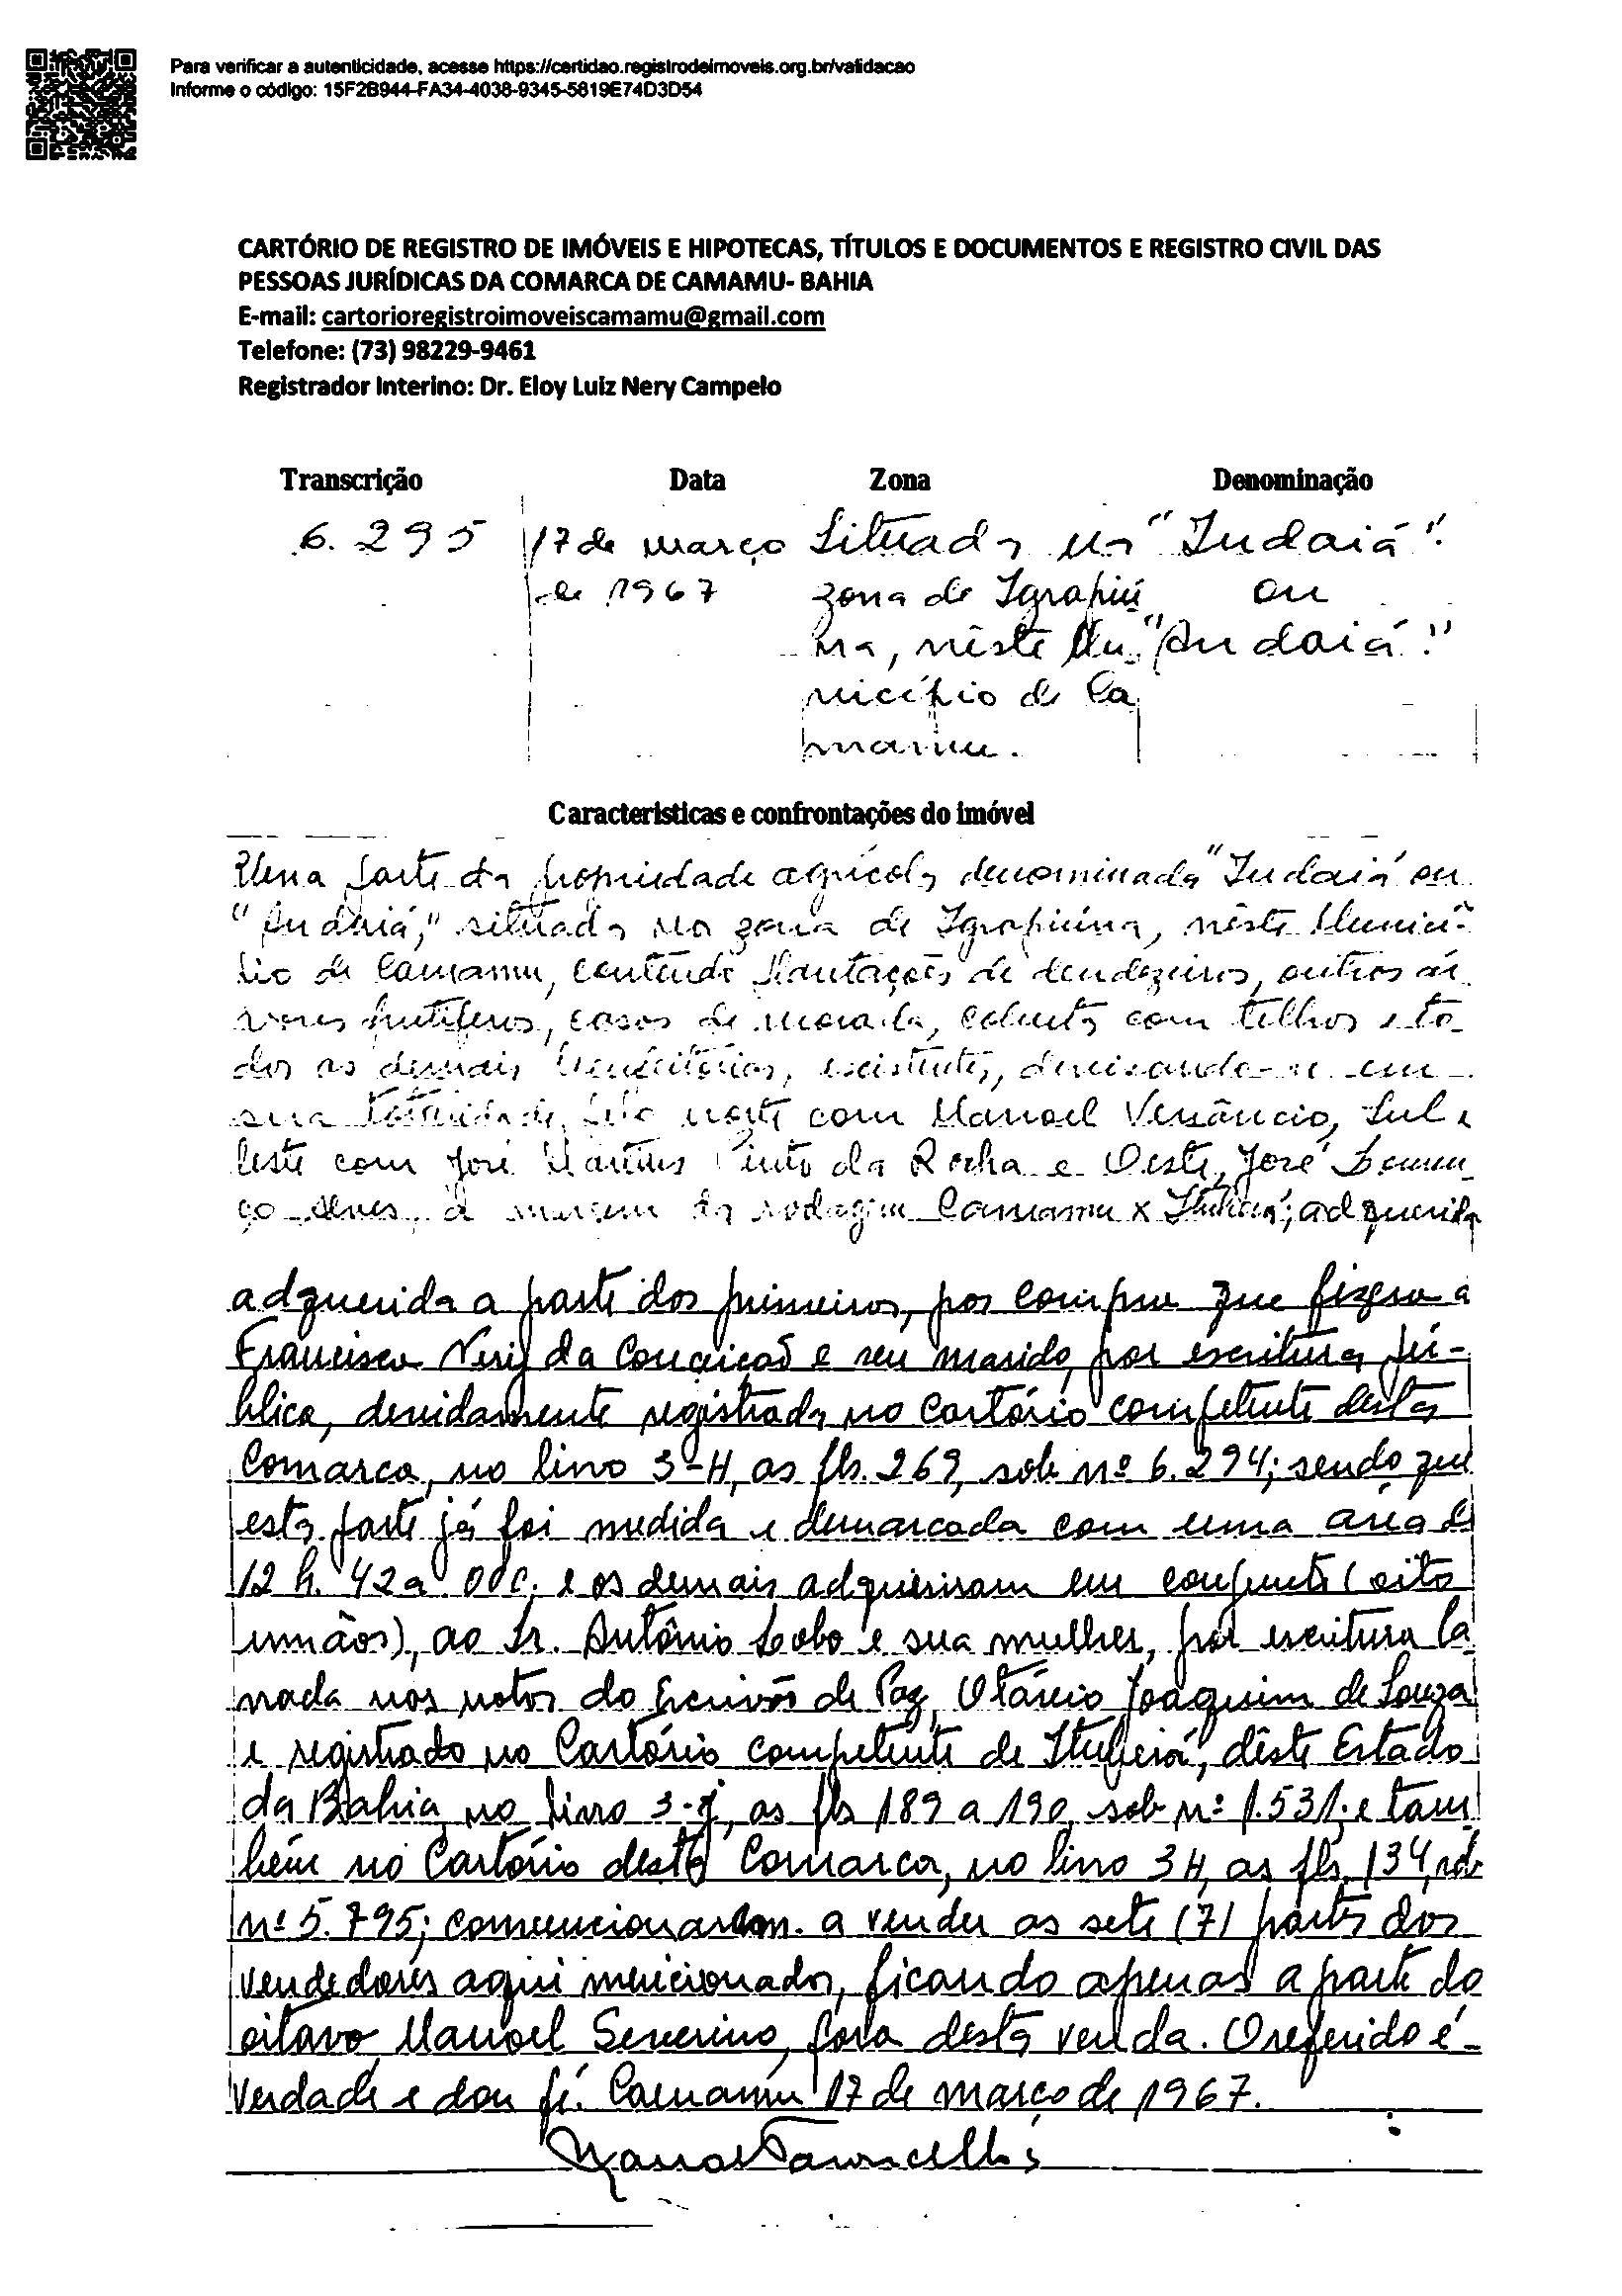 Para verificar a autenticidade, acesse https://certidao.registrodeimoveis.org.br/validacao
Informe o código: 15F2B944-FA34-4038-9345-5819E74D3D54
CARTÓRIO DE REGISTRO DE IMÓVEIS E HIPOTECAS, TÍTULOS E DOCUMENTOS E REGISTRO CIVIL DAS
PESSOAS JURÍDICAS DA COMARCA DE CAMAMU- BAHIA
E-mail: cartorioregistroimoveiscamamu@gmail.com
Telefone: (73) 98229-9461
Registrador Interino: Dr. Eloy Luiz Nery Campelo
Transcrição Data Zona Denominação
6.295 17 de março Situada na "Indaiá".
de 1967 zona de Igrapiú ou
na, nêste Mu "Andaiá."
nicípio de Ca
mamu.
Caracteristicas e confrontações do imóvel
Uma parte da propriedade agrícola denominada "Indaiá ou
"Andaiá," situada na zona de Igrapiúna, nêste Municí-
pio de Camamu, contendo plantações de dendezeiros, outros ár
vores frutíferos, casas de morada, coberta com telhas e to
dos as demais benfeitorias, existentes, devisando-se em
sua totalidade, pelo norte com Manoel Versâncio, Sul e
leste com José Martins Pinto da Rocha e Oeste, José
ço Alves, à margem da rodagem Camamu x Ituberá; adquerida
adquerida a parte dos primeiros, por compra que fizera a
Francisca Nery da Conceição e seu marido, por escritura pú-
blica, devidamente registrada no Cartório competente desta
Comarca, no livro 3-H, as fls. 269, sob nº 6.294; sendo que
esta parte já foi medida e demarcada com uma area de
12 h. 42a 00c. e os demais adqueriram em conjunto (oito
irmãos), ao Sr. Antônio Lobo e sua mulher, por escritura la
vrada nas notas do Escrivão de Paz, Otávio Joaquim de Souza
e registrado no Cartório competente de Ituberá, dêste Estado
da Bahia, no livro 3-J, as fls 189 a 190, sob nº 1.531; e tam
bém no Cartório desta Comarca, no livro 3H, as fls. 134, sob
nº 5.795; convencionaram a vender as sete (7) partes dos
vendedores aqui mencionados, ficando apenas a parte do
oitavo, Manoel Severino, fora desta venda. O referido é
verdade e dou fé. Camamu 17 de março de 1967.